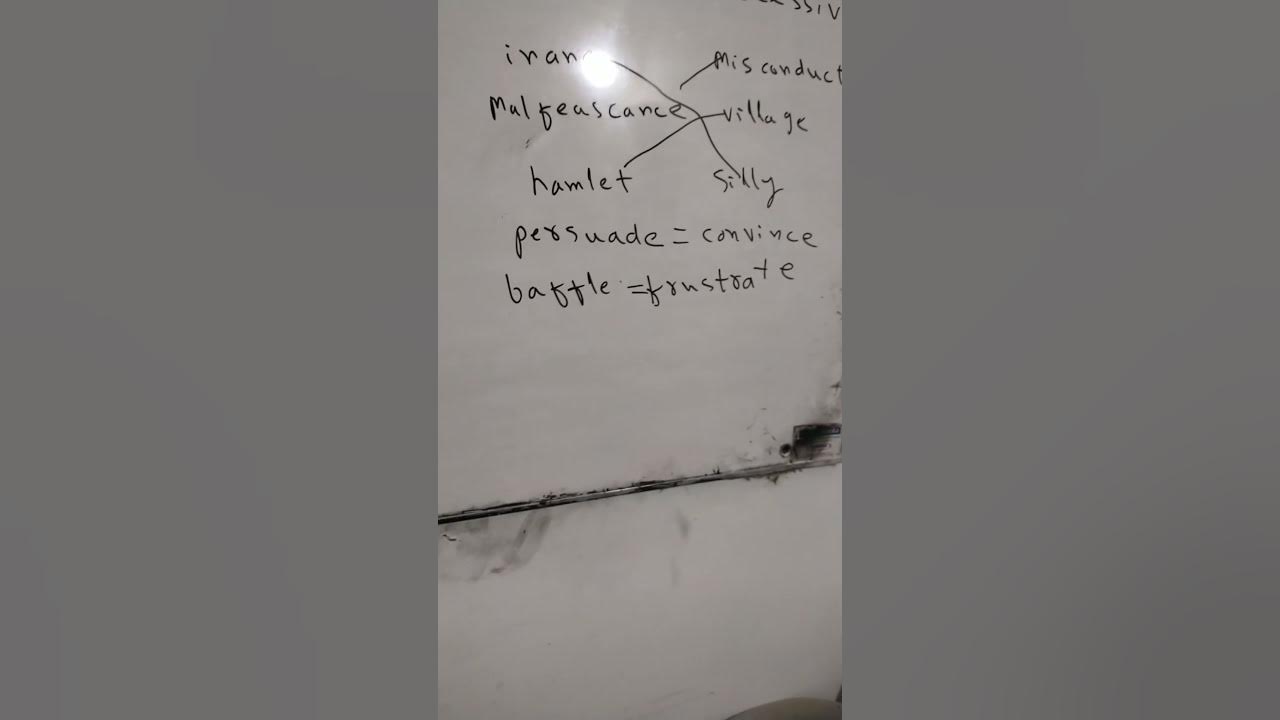 misconduct
malfeascance village
hamlet silly
persuade = convince
baffle = frustrate